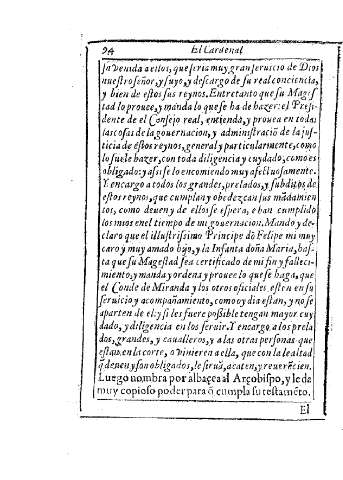 94 El Cardenal
su venida a ellos, que seria muy gran seruicio de Dios
nuestro señor, y suyo, y descargo de su real conciencia,
y bien de estos sus reynos. Entretanto que su Mages
tad lo prouee, y manda lo que se ha de hazer: el Presi
dente de el Consejo real, entienda, y prouea en todas
las cosas de la gouernacion, y administraciō de la jus-
ticia de estos reynos, general y particularmente, como
lo suele hazer, con toda diligencia y cuydado, como es
obligado: y assi se lo encomiendo muy afectuosamente.
Y encargo a todos los grandes, prelados, y subditos de
estos reynos, que cumplan y obedezcan sus mādamien
tos, como deuen y de ellos se espera, e han cumplido
los mios en el tiempo de mi gouernacion. Mando y de-
claro que el illustrissimo Principe dō Felipe mi muy
caro y muy amado hijo, y la Infanta doña Maria, has-
ta que su Magestad sea certificado de mi fin y falleci-
miento, y manda y ordena y prouee lo que se haga, que
el Conde de Miranda y los otros oficiales esten en su
seruicio y acompañamiento, como oy dia estan, y no se
aparten de el: y si les fuere possible tengan mayor cuy
dado, y diligencia en los seruir. Y encargo a los prela
dos, grandes, y caualleros, y a las otras personas que
estan en la corte, o vinieren a ella, que con la lealtad
q̄ deuen y son obligados, le siruā, acaten, y reuerēcien.
Luego nombra por albaçea al Arçobispo, y le da
muy copioso poder para q̄ cumpla su testamēto.
El